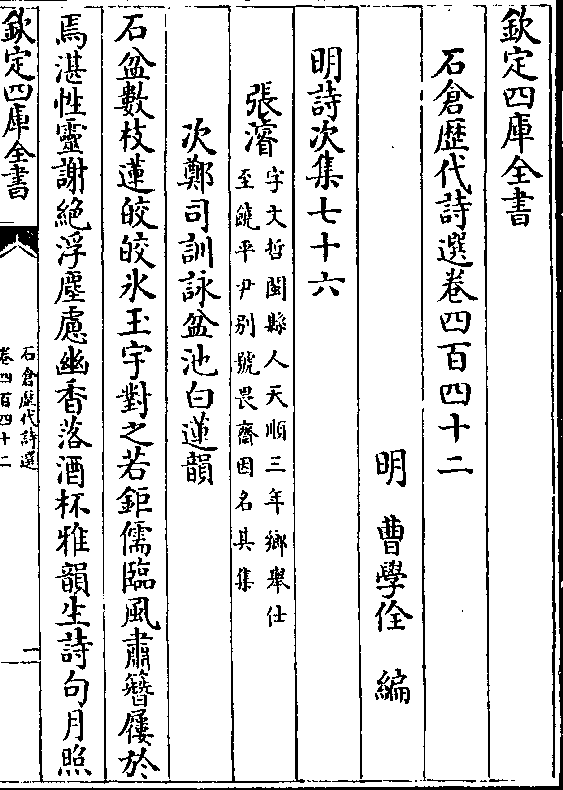 欽定四庫全書
石倉歷代詩選卷四百四十二
明 曹學佺 編
明詩次集七十六
張濬 字文哲閩縣人天順三年鄉舉仕
至饒平尹別號畏齋因名其集
次鄭司訓詠盆池白蓮韻
石盆數枝蓮皎皎氷玉宇對之若鉅儒臨風肅簪屨於
焉湛性靈謝絶浮塵慮幽香落酒杯雅韻生詩句月照
欽定四庫全書
石倉歷代詩選
卷四百四十二
一